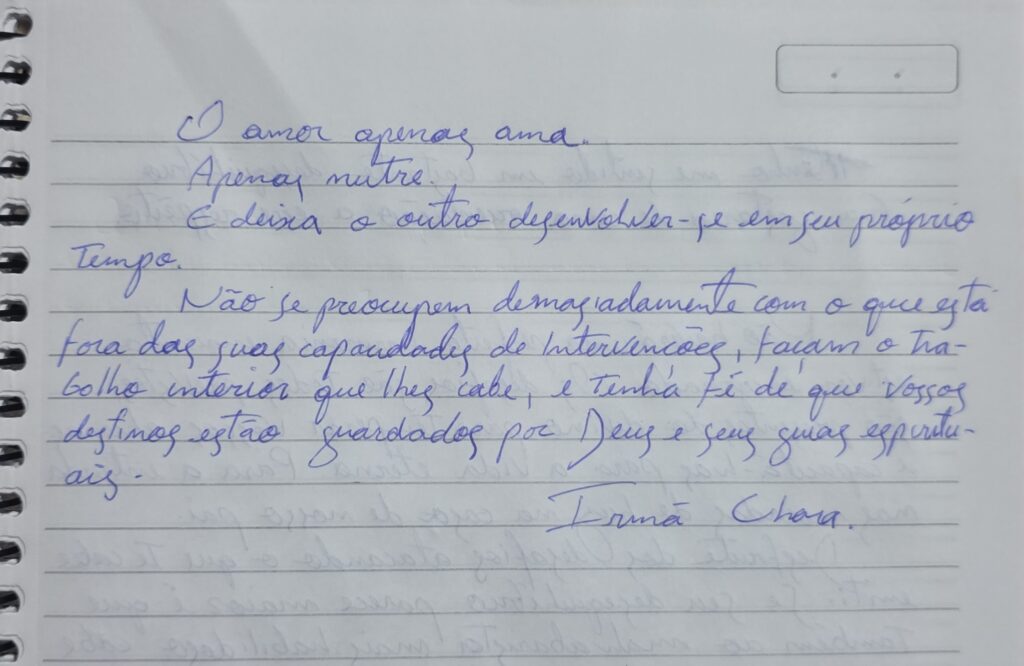 O amor apenas ama.
Apenas nutre.
E deixa o outro desenvolver-se em seu próprio
tempo.
Não se preocupem demasiadamente com o que está
fora das suas capacidades de intervenções, façam o tra-
balho interior que lhes cabe, e tenha fé de que vossos
destinos estão guardados por Deus e seus guias espiritu-
ais.
Irmã Chara.